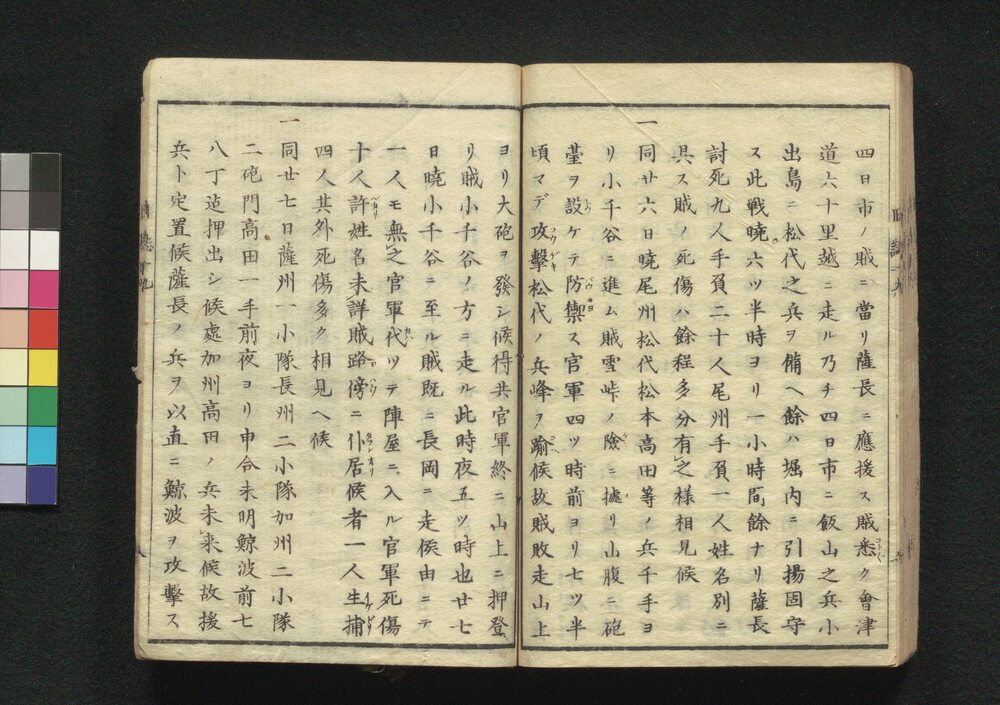 四日市ノ賊ニ當リ薩長ニ應援ス賊悉ク會津
道六十里越ニ走ル乃チ四日市ニ飯山之兵小
出島ニ松代之兵ヲ備ヘ餘ハ堀内ニ引揚固守
ス此戰曉六ツ半時ヨリ一小時間餘ナリ薩長
討死九人手負二十人尾州手負一人姓名別ニ
具ス賊ノ死傷ハ餘程多分有之樣相見候
一同廿六日曉尾州松代松本高田等ノ兵千手ヨ
リ小千谷ニ進ム賊雪峠ノ險ニ據リ山腹ニ砲
臺ヲ設ケテ防禦ス官軍四ツ時前ヨリ七ツ半
頃マデ攻擊松代ノ兵峰ヲ踰候故賊敗走山上
ヨリ大砲ヲ發シ候得共官軍終ニ山上ニ押登
リ賊小千谷ノ方ニ走ル此時夜五ツ時也廿七
日曉小千谷ニ至ル賊既ニ長岡ニ走候由ニテ
一人モ無之官軍代ツテ陣屋ニ入ル官軍死傷
十人許姓名未詳賊路傍ニ仆居候者一人生捕
四人其外死傷多ク相見ヘ候
一同廿七日薩州一小隊長州二小隊加州二小隊
二砲門高田一手前夜ヨリ申合未明鯨波前七
八丁迄押出シ候處加州高田ノ兵未来候故後
兵ト定置候薩長ノ兵ヲ以直ニ鯨波ヲ攻擊ス